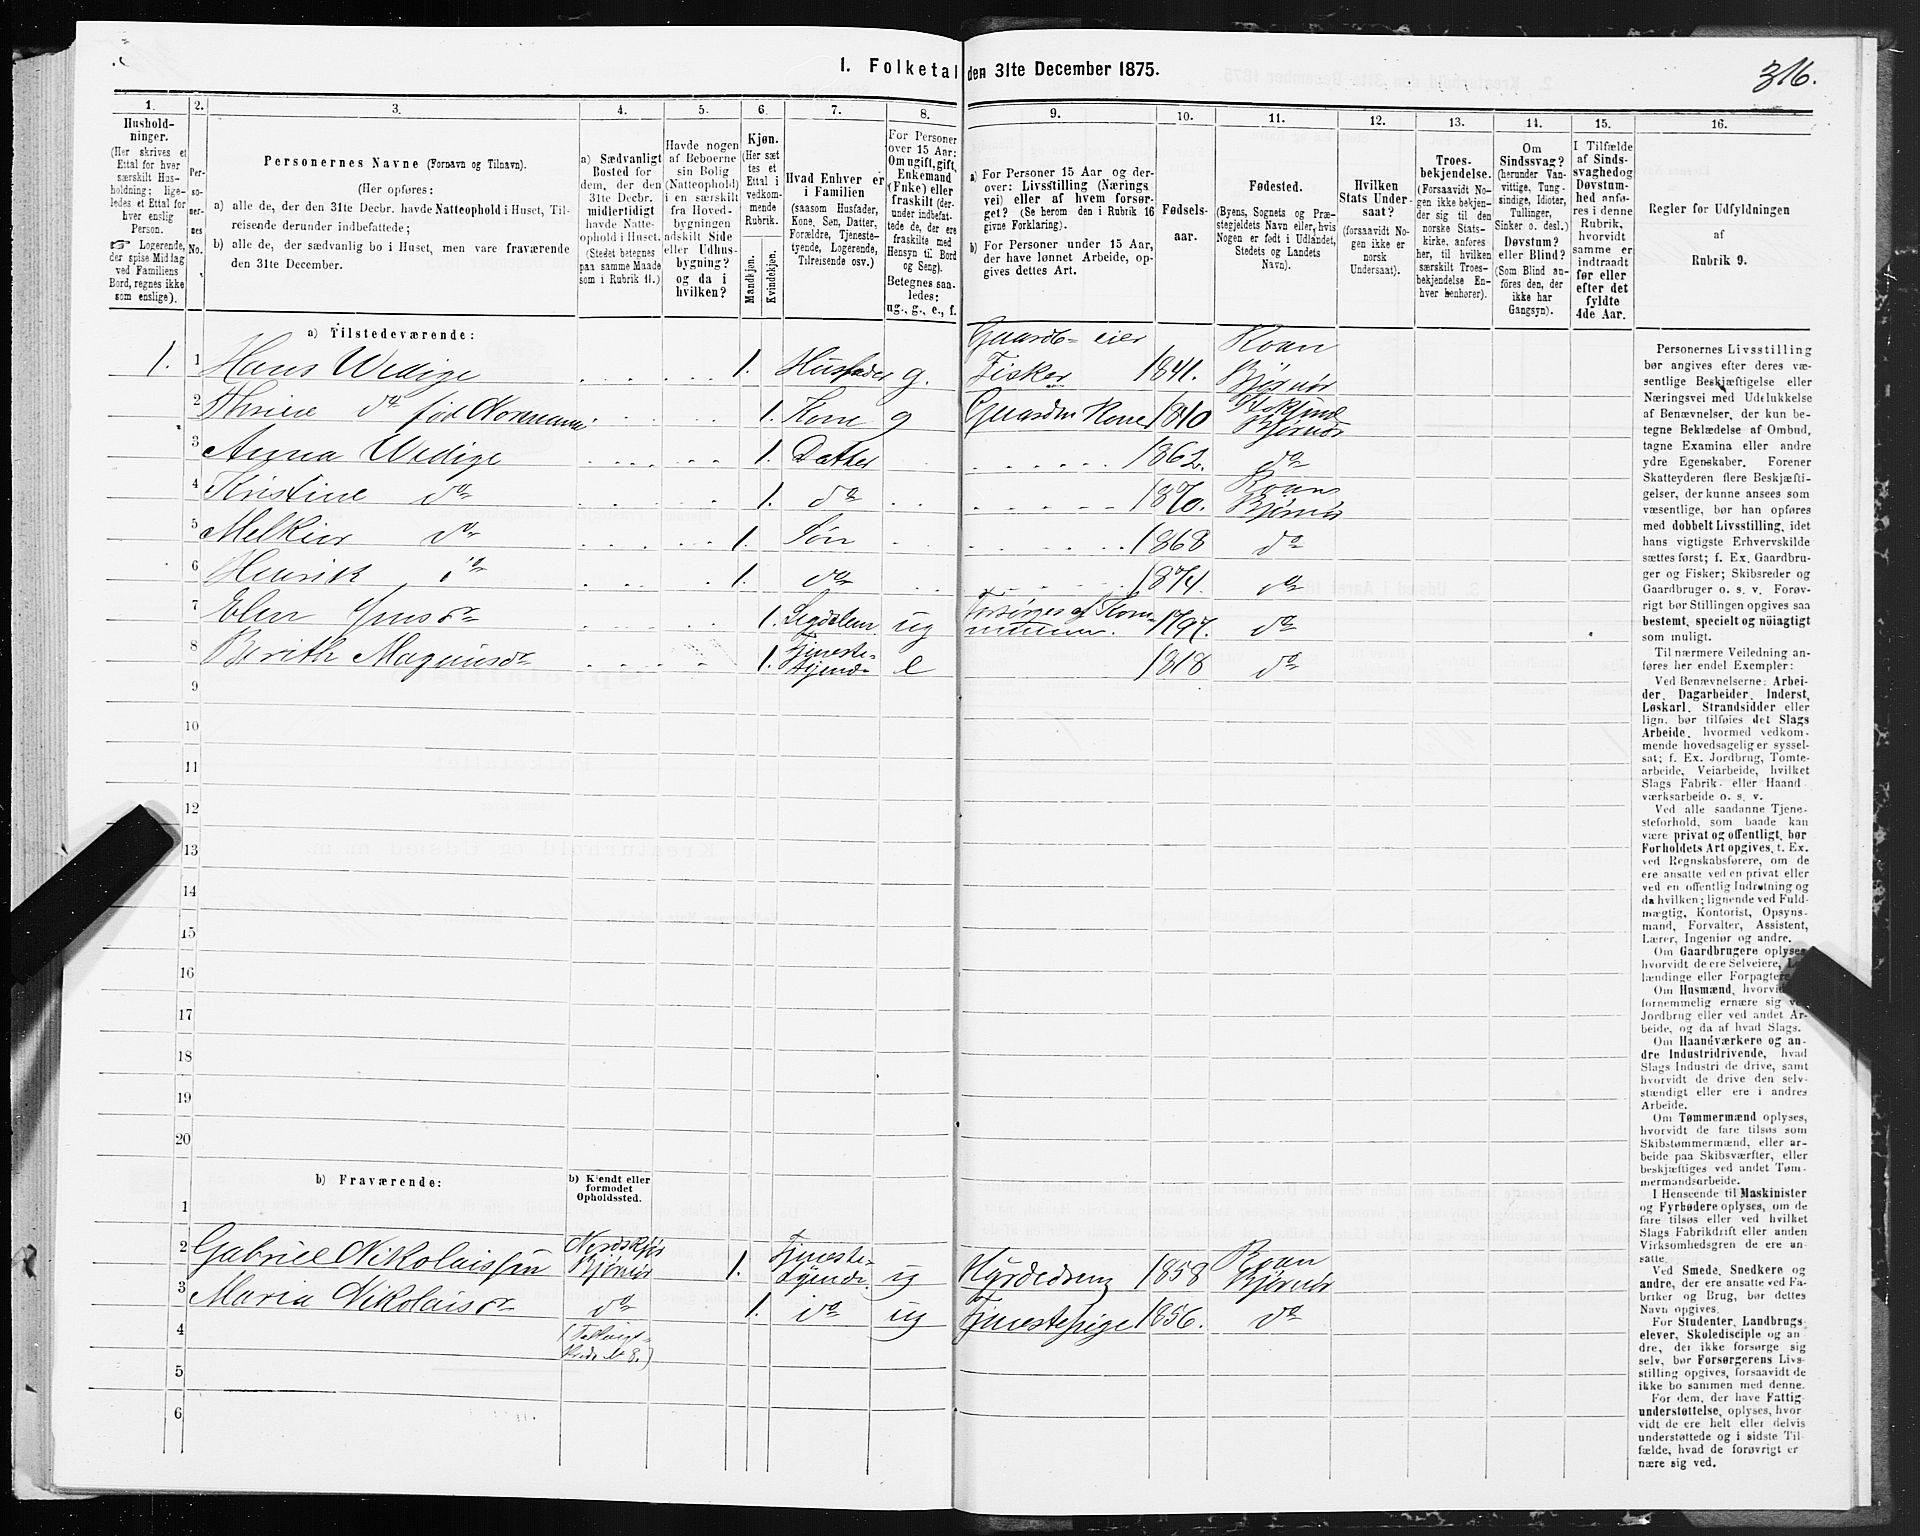 I. Folketal den 31te December 1875.
316.
1.
2.
3.
4.
5.
6.
7.
8.
9.
10.
11.
12.
13.
14.
15.
16.
Hushold-
ninger.
(Her skrives et
Ettal for hver
særskilt Hus-
holdning; lige-
ledes et Ettal for
hver enslig
Person.
☞ Logerende,
der spise Middag
ved Familiens
Bord, regnes ikke
som enslige).
Per-
so-
ner-
nes
No.
Personernes Navne (Fornavn og Tilnavn).
(Her opføres:
a) alle de, der den 31te Decbr. havde Natteophold i Huset, Til-
reisende derunder indbefattede;
b) alle de, der sædvanlig bo i Huset, men vare fraværende
den 31te December.
a) Sædvanligt
Bosted for
dem, der den
31te Decbr.
midlertidigt
havde Natte-
ophold i Huset.
(Stedet betegnes
paa samme Maade
som i Rubrik 11.)
Havde nogen
af Beboerne
sin Bolig
(Natteophold)
i en særskilt
fra Hoved-
bygningen
adskilt Side
eller Udhus-
bygning?
og da i
hvilken?
Kjøn.
(Her sæt
et
Ettal i
vedkom-
mende
Rubrik.
Mandkjøn.
Kvindekjøn.
Hvad Enhver er
i Familien
(saasom Husfader,
Kone, Søn, Datter,
Forældre, Tjeneste-
tyende, Logerende,
Tilreisende osv.)
For Personer
over 15 Aar:
Om ugift, gift,
Enkemand
(Enke) eller
fraskilt (der-
under indbefat-
tede de, der ere
fraskilte med
Hensyn til Bord
og Seng).
Betegnes saa-
ledes:
ug., g., e., f.
a) For Personer 15 Aar og der-
over: Livsstilling (Nærings
vei) eller af hvem forsør-
get? (Se herom den i Rubrik 16
givne Forklaring).
b) For Personer under 15 Aar,
der have lønnet Arbeide, op-
gives dettes Art.
Fødsels-
aar.
Fødested.
(Byens, Sognets og Præ-
stegjeldets Navn eller, hvis
Nogen er født i Udlandet,
Stedets og Landets
Navn).
Hvilken
Stats Under-
saat?
(forsaavidt No-
gen ikke er
norsk
Undersaat).
Troes-
bekjendelse.
(Forsaavidt No-
gen ikke bekjen-
der sig til den
norske Stats-
kirke, anføres
her, til hvilken
særskilt Troes-
bekjendelse En-
hver henhører).
Om
Sindssvag?
(herunder Van-
vittige, Tung-
sindige, Idioter,
Tullinger,
Sinker o. desl.)
Døvstum?
eller Blind?
(Som Blind an-
føres den, der
ikke har
Gangsyn).
I Tilfælde
af Sinds-
svaghed og
Døvstum-
hed anfø-
res i denne
Rubrik,
hvorvidt
samme er
indtraadt
før eller
efter det
fyldte
4de Aar.
Regler for Udfyldningen
af
Rubrik 9.
a) Tilstedeværende:
1. 1 Hans Wedige 1. Husfader g. Gaardb- eier Fisker 1841. Roan Bjørnør
2 do født 1. Kone g Kone 1840 Bjørnør
3 Anna Wedige 1. Datter 1862. do
4 Kristine do 1. do 1870. Roan Bjørnør
5 Melkior do 1. Søn 1868 do
6 Henrik do 1. do do
7 Elen 1. ug Forsørges af Kom- munen. 1797. do
8 Berith Magnusdr 1. Tjeneste- tyende e 1818 do
9
10
11
12
13
14
15
16
17
18
19
20
b) Fraværende:
b) Kjendt eller
formodet
Opholdssted.
1
2 Gabriel Nikolaissen Bjørnør 1. Tjeneste- tyende. ug Hyrdedreng 1858 Roan Bjørnør
3 Maria Nikolaisdr do 1. do ug Tjenestepige 1856. do
4
5
6
Personernes Livsstilling
bør angives efter deres væ-
sentlige Beskjæftigelse eller
Næringsvei med Udelukkelse
af Benævnelser, der kun be-
tegne Beklædelse af Ombud,
tagne Examina eller andre
ydre Egenskaber. Forener
Skatteyderen flere Beskjæfti-
gelser, der kunne ansees som
væsentlige, bør han opføres
med dobbelt Livsstilling, idet
hans vigtigste Erhvervskilde
sættes først; f. Ex. Gaardbru-
ger og Fisker; Skibsreder og
Gaardbruger o. s. v. Forøv-
rigt bør Stillingen opgives saa
bestemt, specielt og nøiagtigt
som muligt.
Til nærmere Veiledning an-
føres her endel Exempler:
Ved Benævnelserne: Arbei-
der, Dagarbeider, Inderst,
Løskarl, Strandsidder eller
lign. bør tilføies det Slags
Arbeide, hvormed vedkom-
mende hovedsagelig er syssel-
sat; f. Ex. Jordbrug, Tomte-
arbeide, Veiarbeide, hvilket
Slags Fabrik- eller Haand
værksarbeide o. s. v.
Ved alle saadanne Tjene-
steforhold, som baade kan
være privat og offentligt, bør
Forholdets Art opgives, t. Ex.
ved Regnskabsførere, om de
ere ansatte ved en privat eller
ved en offentlig Indretning og
da hvilken; lignende ved Fuld-
mægtig, Kontorist, Opsyns-
mand, Forvalter, Assistent,
Lærer, Ingeniør og andre.
Om Gaardbrugere oplyses,
hvorvidt de ere Selveiere, Lei-
lændinge eller Forpagtere.
Om Husmænd, hvorvidt de
fornemmelig ernære sig ved
Jordbrug eller ved andet Ar-
beide, og da af hvad Slags.
Om Haandværkere og an-
dre Industridrivende, hvad
Slags Industri de drive, samt
hvorvidt de drive den selv-
stændigt eller ere i andres
Arbeide.
Om Tømmermænd oplyses,
hvorvidt de fare tilsøs som
Skibstømmermænd, eller ar-
beide paa Skibsværfter, eller
beskjæftiges ved andet Tøm-
mermandsarbeide.
I Henseende til Maskinister
og Fyrbødere oplyses, om de
fare tilsøs eller ved hvilket
Slags Fabrikdrift eller anden
Virksomhedsgren de ere an-
satte.
Ved Smede, Snedkere og
andre, der ere ansatte ved Fa-
briker og Brug, bør dettes
Navn opgives.
For Studenter, Landbrugs-
elever, Skoledisciple og an-
dre, der ikke forsørge sig
selv, bør Forsørgerens Livs-
stilling opgives, forsaavidt de
ikke bo sammen med denne.
For dem, der have Fattig-
understøttelse, oplyses, hvor
vidt de ere helt eller delvis
understøttede og i sidste Til-
fælde, hvad de forøvrigt er
nære sig ved.